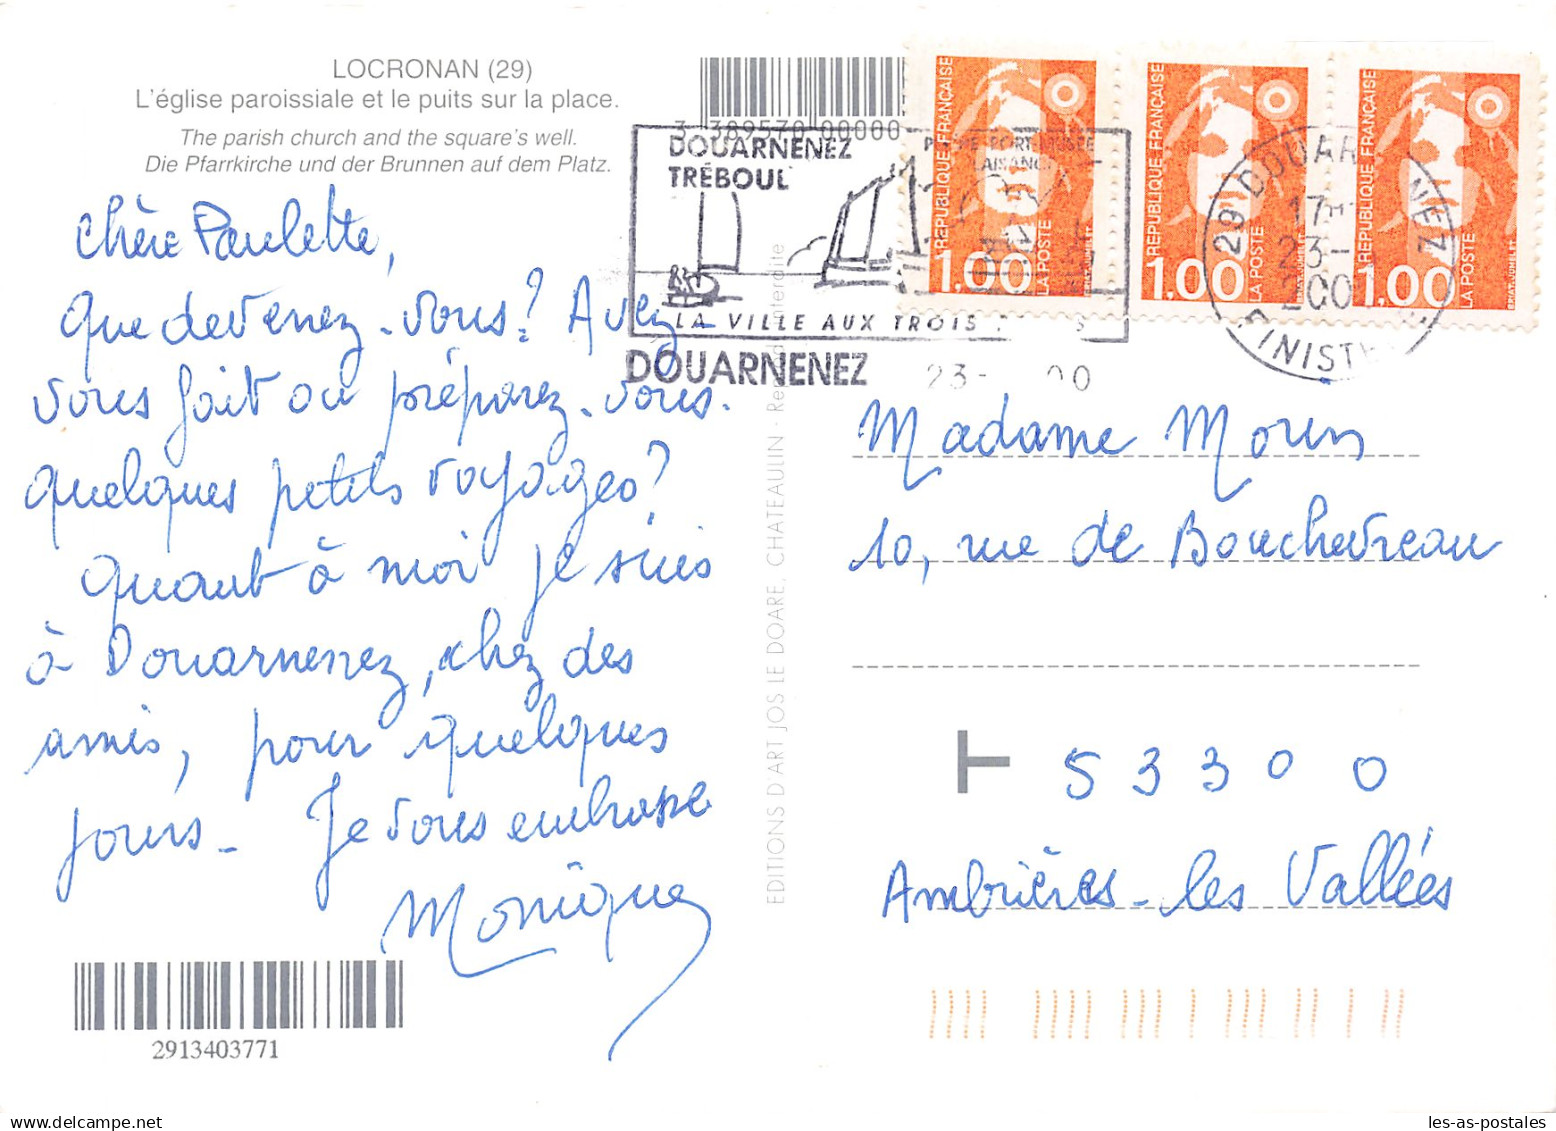 LOCRONAN (29)
L'église paroissiale et le puits sur la place.
The parish church and the square's well.
Die Pfarrkirche und der Brunnen auf dem Platz.
Chère Paulette,
Que devenez-vous? Avez
vous fait ou préparez-vous.
quelques petits voyages?
Quant à moi je suis
à Douarnenez, chez des
amis, pour quelques
jours - Je vous embrasse
Monique
2913403771
3 389570 00000
DOUARNENEZ
TRÉBOUL
LA VILLE AUX TROIS
DOUARNENEZ
23- 00
EDITIONS D'ART JOS LE DOARE, CHATEAULIN -
RÉPUBLIQUE FRANÇAISE
1.00
LA POSTE
RÉPUBLIQUE FRANÇAISE
1.00
LA POSTE
RÉPUBLIQUE FRANÇAISE
1.00
LA POSTE
29 DOUAR NEZ
17H
23-
200
FINIST
Madame Morin
10, rue de Bouchevreau
53300
Ambrières-les Vallées
les-as-postales